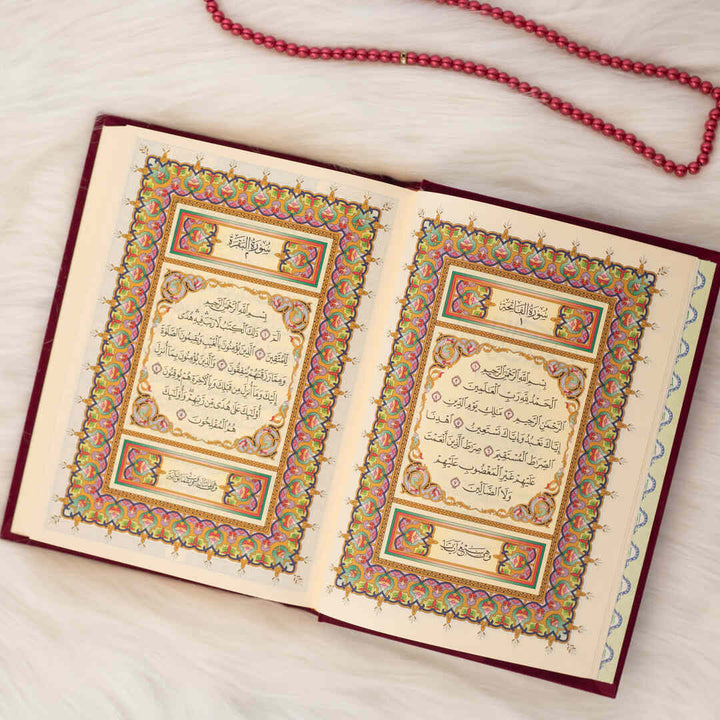 سورة الفاتحة
١
بسم الله الرحمن الرحيم ١
الحمد لله رب العلمين ٢
الرحمن الرحيم ٣ ملك يوم الدين ٤
إياك نعبد وإياك نستعين ٥ اهدنا
الصرط المستقيم ٦ صرط الذين أنعمت
عليهم غير المغضوب عليهم
ولا الضالين ٧
وهي سبع آيات
سورة البقرة
٢
بسم الله الرحمن الرحيم
الم ١ ذلك الكتب لا ريب فيه هدى
للمتقين ٢ الذين يؤمنون بالغيب ويقيمون الصلوة
ومما رزقنهم ينفقون ٣ والذين يؤمنون بما أنزل
إليك وما أنزل من قبلك وبالآخرة هم يوقنون ٤
أولئك على هدى من ربهم وأولئك
هم المفلحون ٥